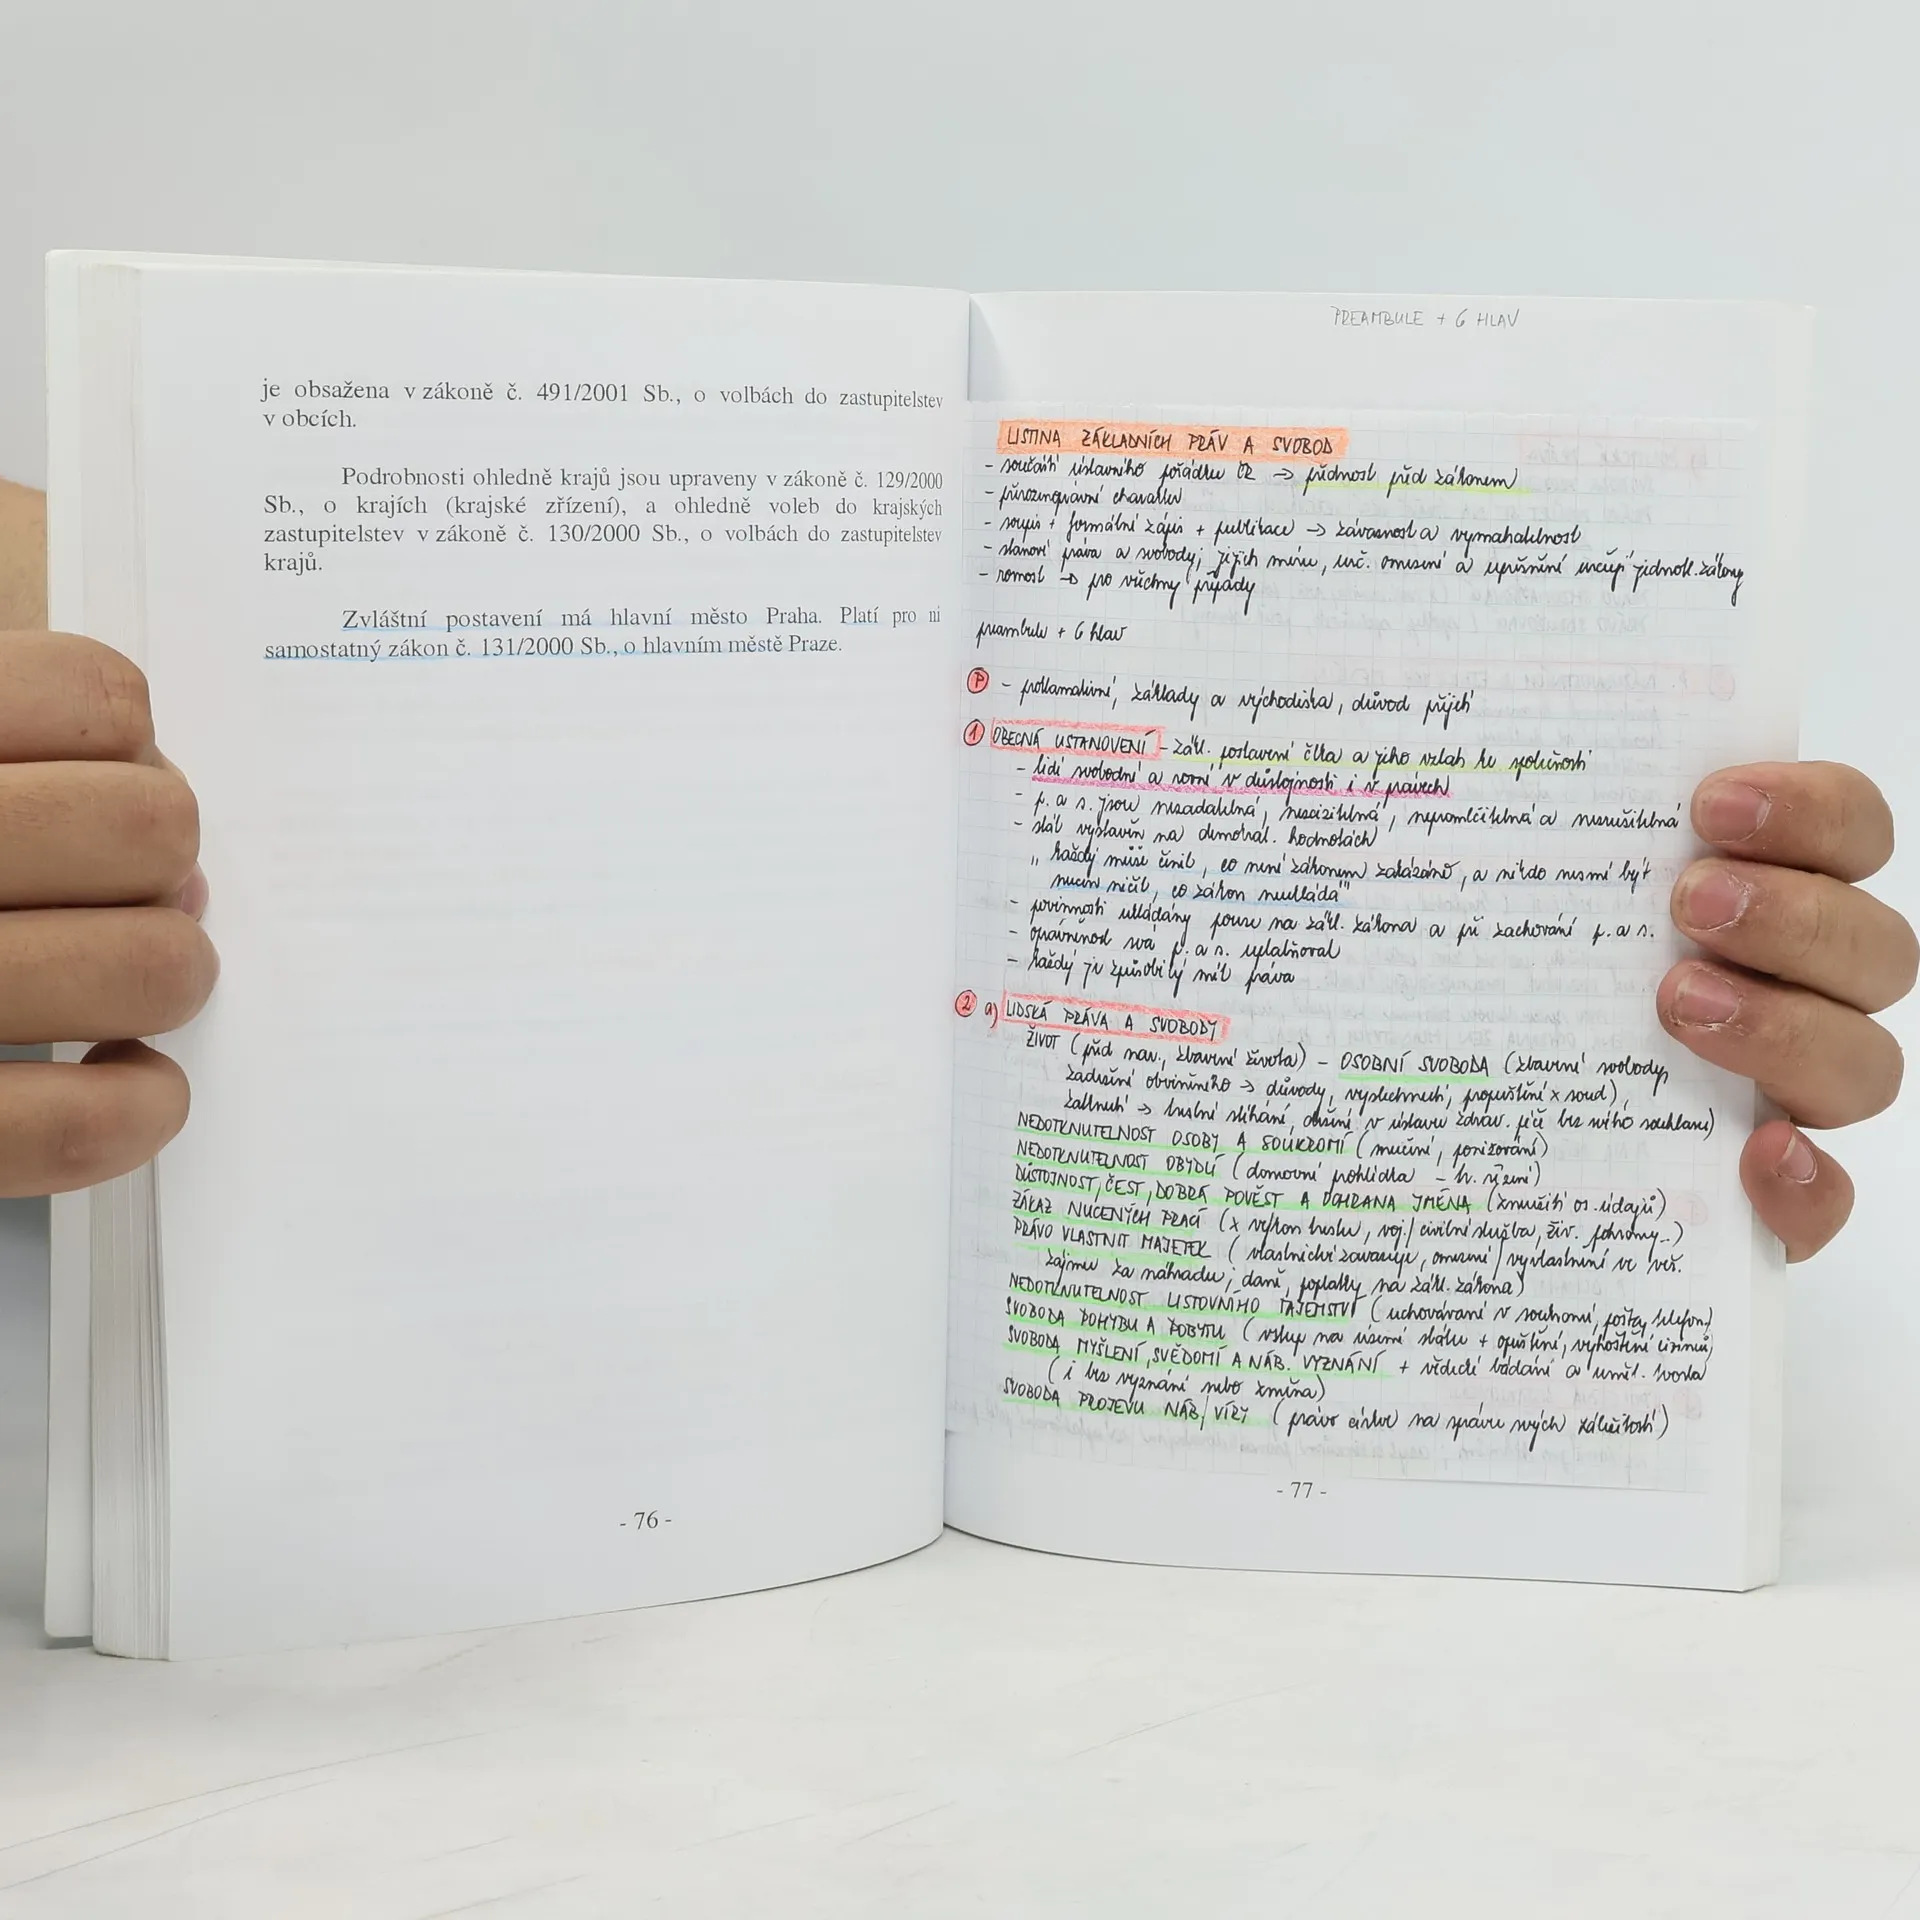 je obsažena v zákoně č. 491/2001 Sb., o volbách do zastupitelstev
v obcích.
Podrobnosti ohledně krajů jsou upraveny v zákoně č. 129/2000
Sb., o krajích (krajské zřízení), a ohledně voleb do krajských
zastupitelstev v zákoně č. 130/2000 Sb., o volbách do zastupitelstev
krajů.
Zvláštní postavení má hlavní město Praha. Platí pro ni
samostatný zákon č. 131/2000 Sb., o hlavním městě Praze.
- 76 -
PREAMBULE + 6 HLAV
LISTINA ZÁKLADNÍCH PRÁV A SVOBOD
- součástí ústavního pořádku ČR → přednost před zákonem
- přirozenoprávní charakter
- soupis + formální zápis + publikace → závaznost a vymahatelnost
- stanoví práva a svobody; jejich míru, urč. omezení a upřesnění určují jednotl. zákony
- rovnost → pro všechny případy
preambule + 6 hlav
P - proklamativní, základy a východiska, důvod přijetí
1 OBECNÁ USTANOVENÍ - zákl. postavení čl-ka a jeho vztah ke společnosti
- lidi svobodní a rovní v důstojnosti i v právech
- p. a s. jsou nezadatelná, nezcizitelná, nepromlčitelná a nezrušitelná
- stát vystavěn na demokrat. hodnotách
„každý může činit, co není zákonem zakázáno, a nikdo nesmí být
nucen činit, co zákon neukládá"
- povinnosti ukládány pouze na zákl. zákona a při zachování p. a s.
- oprávněnost svá p. a s. uplatňovat
- každý je způsobilý mít práva
2 a) LIDSKÁ PRÁVA A SVOBODY
ŽIVOT (před nar., zbavení života) - OSOBNÍ SVOBODA (zbavení svobody,
zadržení obviněného → důvody, vyslechnutí, propuštění x soud),
zatknutí → trestní stíhání, držení v ústavu zdrav. péče bez svého souhlasu)
NEDOTKNUTELNOST OSOBY A SOUKROMÍ (mučení, ponižování)
NEDOTKNUTELNOST OBYDLÍ (domovní prohlídka - tr. řízení)
DŮSTOJNOST, ČEST, DOBRÁ POVĚST A OCHRANA JMÉNA (zneužití os. údajů)
ZÁKAZ NUCENÝCH PRACÍ (x výkon trestu, voj./civilní služba, živ. pohromy...)
PRÁVO VLASTNIT MAJETEK (vlastnictví zavazuje, omezení/vyvlastnění ve veř.
zájmu za náhradu; daně, poplatky na zákl. zákona)
NEDOTKNUTELNOST LISTOVNÍHO TAJEMSTVÍ (uchovávané v soukromí, pošta, telefon)
SVOBODA POHYBU A POBYTU (vstup na území státu + opuštění, vyhoštění cizinců)
SVOBODA MYŠLENÍ, SVĚDOMÍ A NÁB. VYZNÁNÍ + vědecké bádání a uměl. tvorba
(i bez vyznání nebo změna)
SVOBODA PROJEVU NÁB./VÍRY (právo církví na správu svých záležitostí)
- 77 -